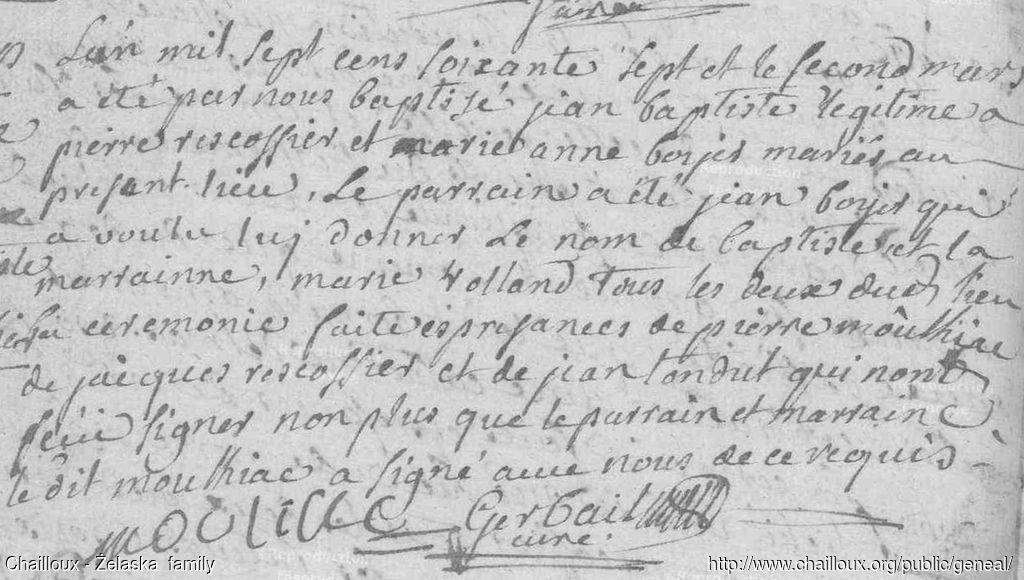 L'an mil sept cens soixante sept et le second mars
a été par nous baptisé jean baptiste legitime a
pierre rescossier et marie anne boyer mariés au
present lieu, Le parrain a été jean boyer qui
a voulu luj donner Le nom de baptiste et la
marrainne, marie Rolland tous les deux dud lieu
ceremonie faite es presances de pierre moulhiac
de jacques rescossier et de jean tondut qui nont
sçeu signer non plus que le parrain et marraine
le dit moulhiac a signé avec nous de ce requis
Gerbail
curé.
Chailloux - Żelaska family
http://www.chailloux.org/public/geneal/